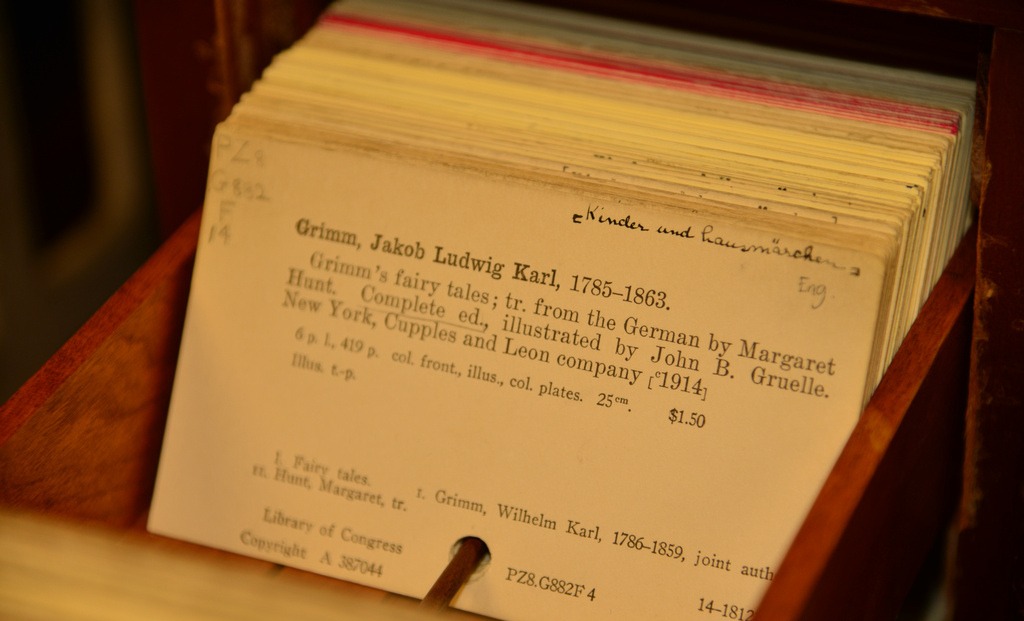 PZ8
G882
F
14
[Kinder und hausmärchen]
Eng.
Grimm, Jakob Ludwig Karl, 1785–1863.
Grimm's fairy tales; tr. from the German by Margaret
Hunt. Complete ed., illustrated by John B. Gruelle.
New York, Cupples and Leon company [ᶜ1914]
6 p. l., 419 p. col. front., illus., col. plates. 25ᶜᵐ. $1.50
Illus. t.-p.
1. Fairy tales. I. Grimm, Wilhelm Karl, 1786–1859, joint auth
II. Hunt, Margaret, tr.
Library of Congress PZ8.G882F 4
Copyright A 387044 14–1812